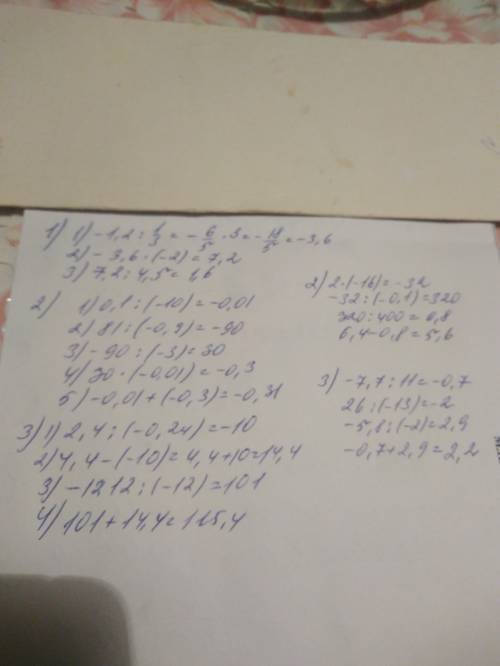 1) 1) -1,2 : 1/3 = -6/5 · 3 = -18/5 = -3,6
2) -3,6 · (-2) = 7,2
3) 7,2 : 4,5 = 1,6
2) 1) 0,1 : (-10) = -0,01
2) 81 : (-0,9) = -90
3) -90 : (-3) = 30
4) 30 · (-0,01) = -0,3
5) -0,01 + (-0,3) = -0,31
3) 1) 2,4 : (-0,24) = -10
2) 4,4 - (-10) = 4,4 + 10 = 14,4
3) -1212 : (-12) = 101
4) 101 + 14,4 = 115,4
2) 2 · (-16) = -32
-32 : (-0,1) = 320
320 : 400 = 0,8
6,4 - 0,8 = 5,6
3) -7,7 : 11 = -0,7
26 : (-13) = -2
-5,8 : (-2) = 2,9
-0,7 + 2,9 = 2,2